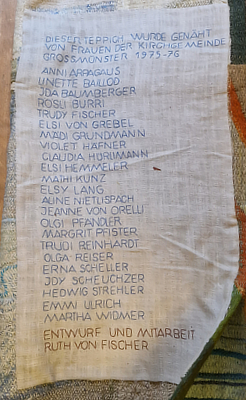 DIESER TEPPICH WURDE GENÄHT
VON FRAUEN DER KIRCHGEMEINDE
GROSSMÜNSTER 1975-76
ANNI ARPAGAUS
LINETTE BAILLOD
IDA BAUMBERGER
RÖSLI BURRI
TRUDY FISCHER
ELSI VON GREBEL
MÄDI GRUNDMANN
VIOLET HÄFNER
CLAUDIA HÜRLIMANN
ELSI HEMMELER
MATHI KUNZ
ELSY LANG
ALINE NIETLISPACH
JEANNE VON ORELLI
OLGI PFÄNDLER
MARGRIT PFISTER
TRUDI REINHARDT
OLGA REISER
ERNA SCHELLER
JDY SCHEUCHZER
HEDWIG STREHLER
EMMI ULRICH
MARTHA WIDMER
ENTWURF UND MITARBEIT
RUTH VON FISCHER